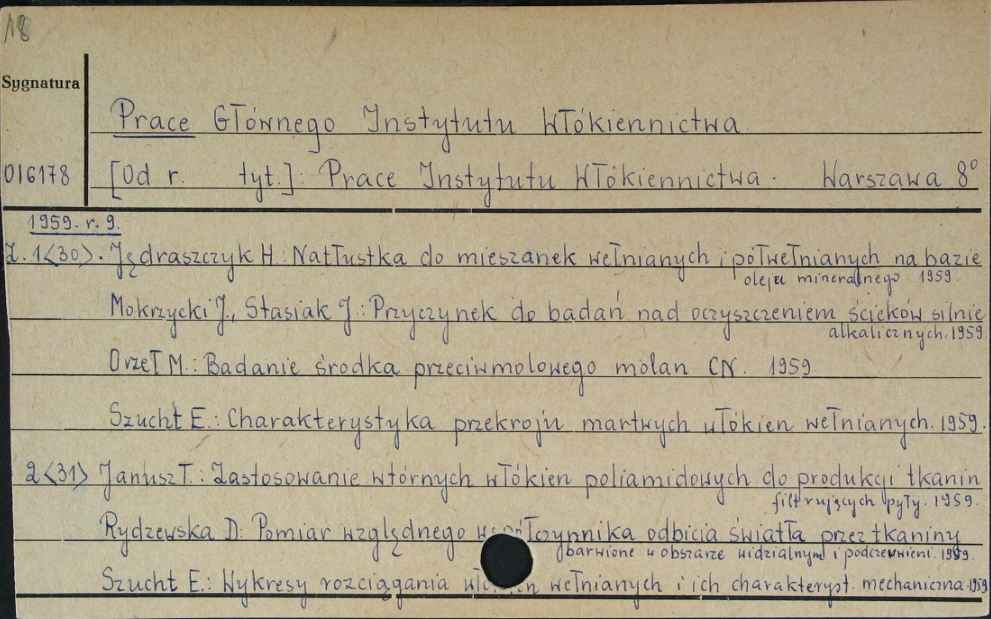 18
Sygnatura
Prace Głównego Instytutu Włókiennictwa
016178 [Od r. tyt.]: Prace Instytutu Włókiennictwa. Warszawa 8°
1959. r. 9.
Z. 1<30>. Jędraszczyk H: Natłustka do mieszanek wełnianych i półwełnianych na bazie
oleju mineralnego 1959.
Mokrzycki J., Stasiak J.: Przyczynek do badań nad oczyszczeniem ścieków silnie
alkalicznych. 1959
Orzeł M.: Badanie środka przeciwmolowego molan CN. 1959
Szucht E.: Charakterystyka przekroju martwych włókien wełnianych. 1959.
2<31> Janusz T.: Zastosowanie wtórnych włókien poliamidowych do produkcji tkanin
filtrujących pyły. 1959.
Rydzewska D: Pomiar względnego odbicia światła przez tkaniny
barwione w obszarze widzialnym i podczerwieni. 1959.
Szucht E.: Wykresy rozciągania wełnianych i ich charakteryst. mechaniczna. 1959